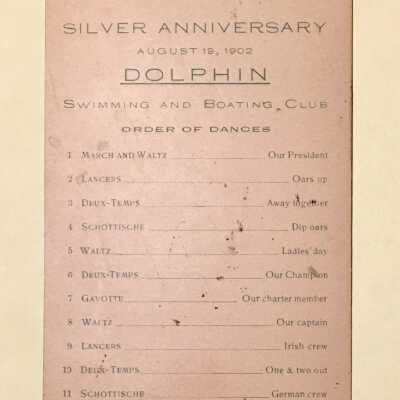 SILVER ANNIVERSARY
AUGUST 19, 1902
DOLPHIN
SWIMMING AND BOATING CLUB
ORDER OF DANCES
1 MARCH AND WALTZ Our President
2 LANCERS Oars up
3 DEUX-TEMPS Away together
4 SCHOTTISCHE Dip oars
5 WALTZ Ladies' day
6 DEUX-TEMPS Our Champion
7 GAVOTTE Our charter member
8 WALTZ Our captain
9 LANCERS Irish crew
10 DEUX-TEMPS One & two out
11 SCHOTTISCHE German crew